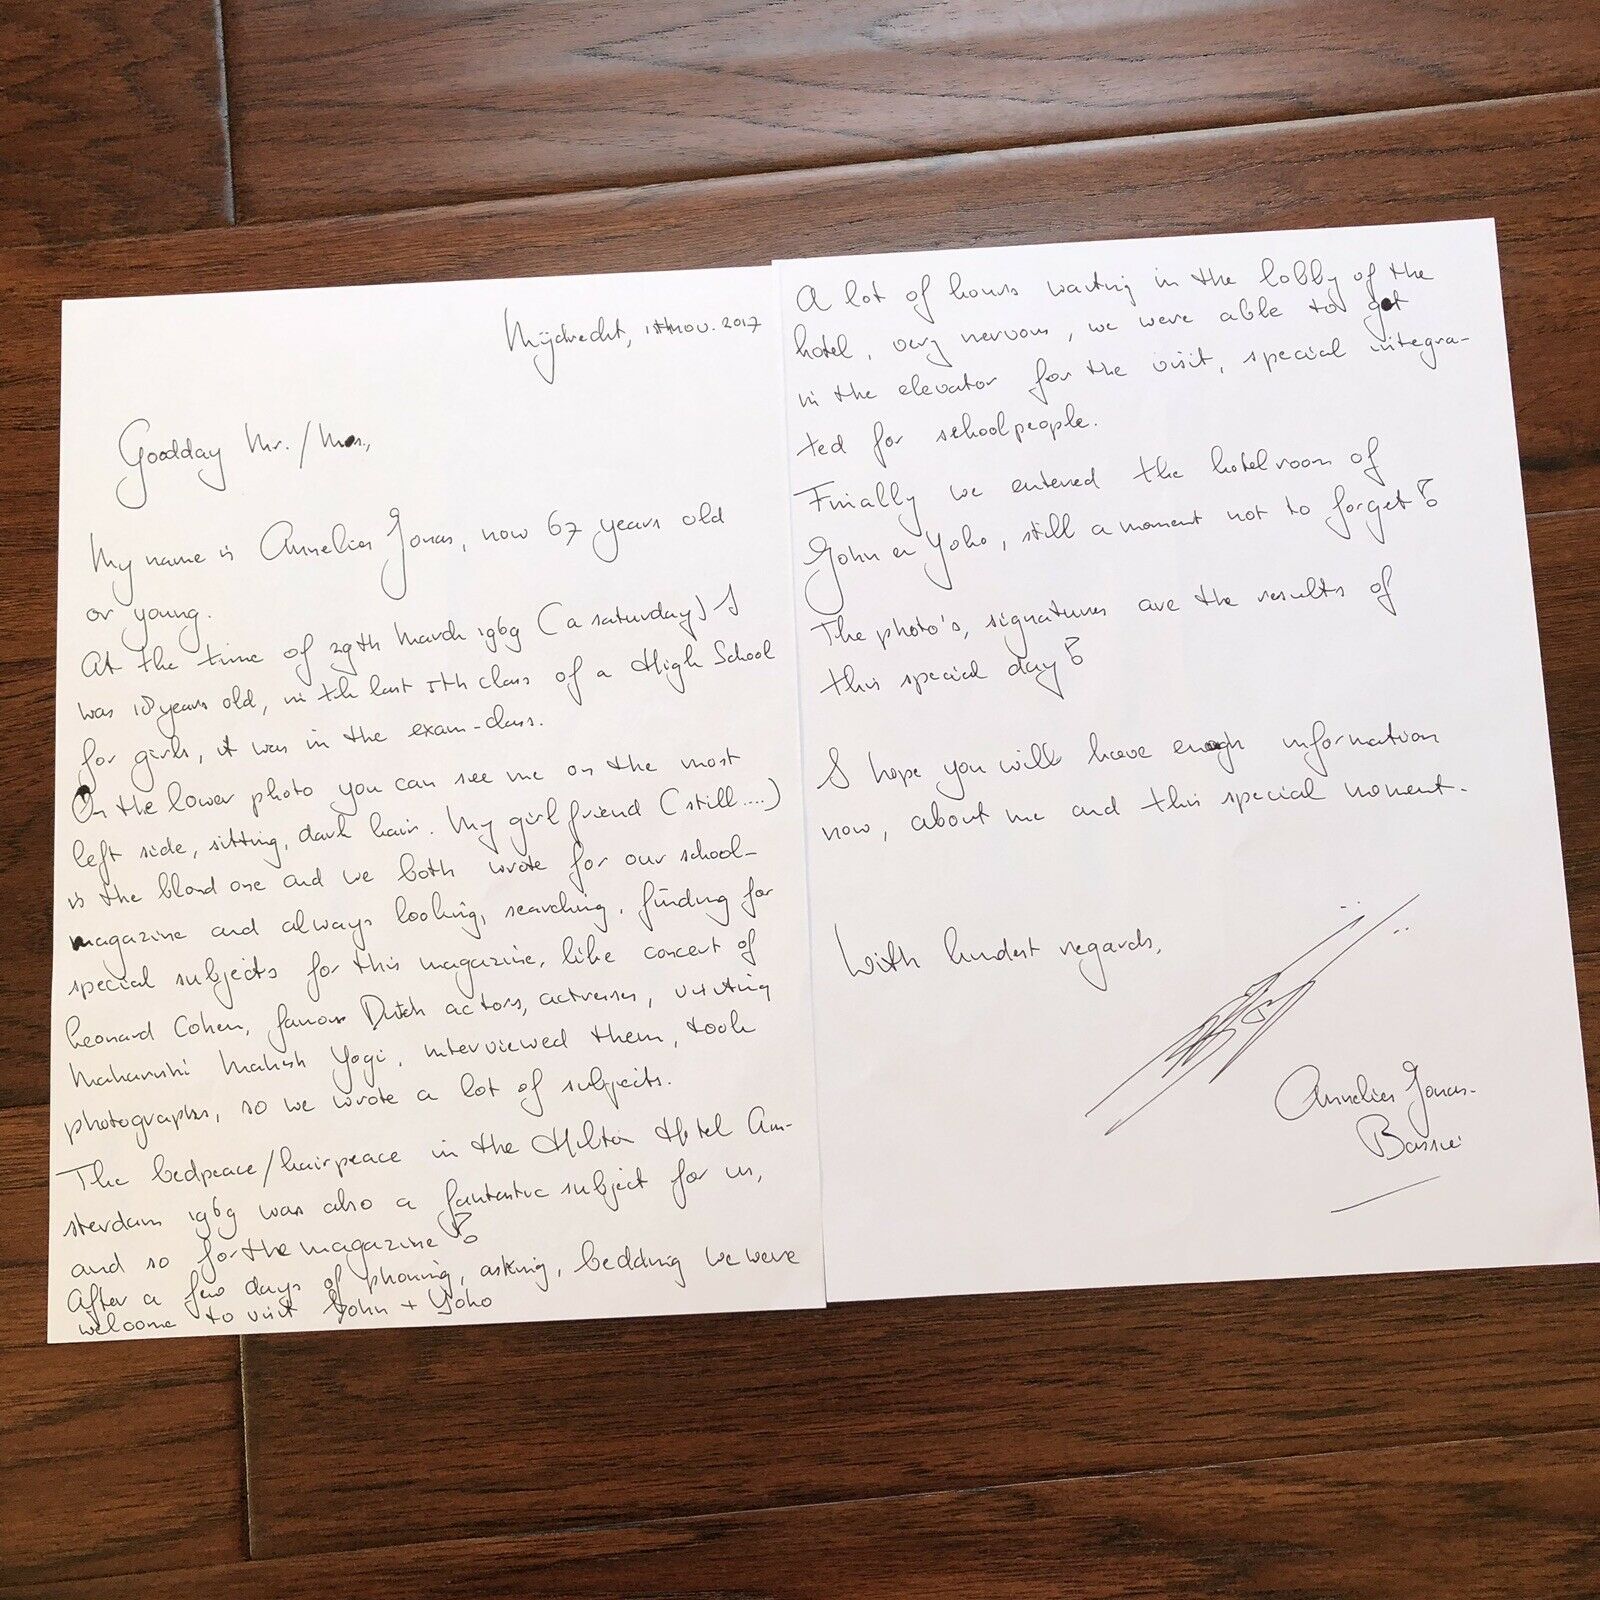 Mijdrecht, 1th nov. 2017
Goodday Mr./Mrs.,
My name is Annelies Jonas, now 67 years old
or young.
At the time of 29th March 1969 (a saturday) I
was 18 years old, in the last 5th class of a High School
for girls, it was in the exam-class.
On the lower photo you can see me on the most
left side, sitting, dark hair. My girlfriend (still....)
is the blond one and we both wrote for our school-
magazine and always looking, searching, finding for
special subjects for this magazine, like concert of
Leonard Cohen, famous Dutch actors, actresses, visiting
Maharishi Mahesh Yogi, interviewed them, took
photographs, so we wrote a lot of subjects.
The bedpeace/hairpeace in the Hilton Hotel Am-
sterdam 1969 was also a fantastic subject for us,
and so for the magazine!
After a few days of phoning, asking, bedding we were
welcome to visit John + Yoko
A lot of hours waiting in the lobby of the
hotel, very nervous, we were able to get
in the elevator for the visit, special integra-
ted for schoolpeople.
Finally we entered the hotelroom of
John en Yoko, still a moment not to forget!
The photo's, signatures are the results of
this special day!
I hope you will have enough information
now, about me and this special moment.
With kindest regards,
Annelies Jonas-